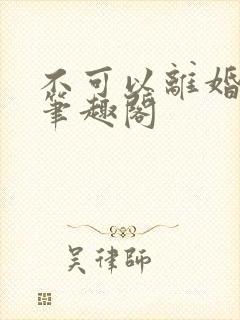 不可以離婚
筆趣閣
吴律師